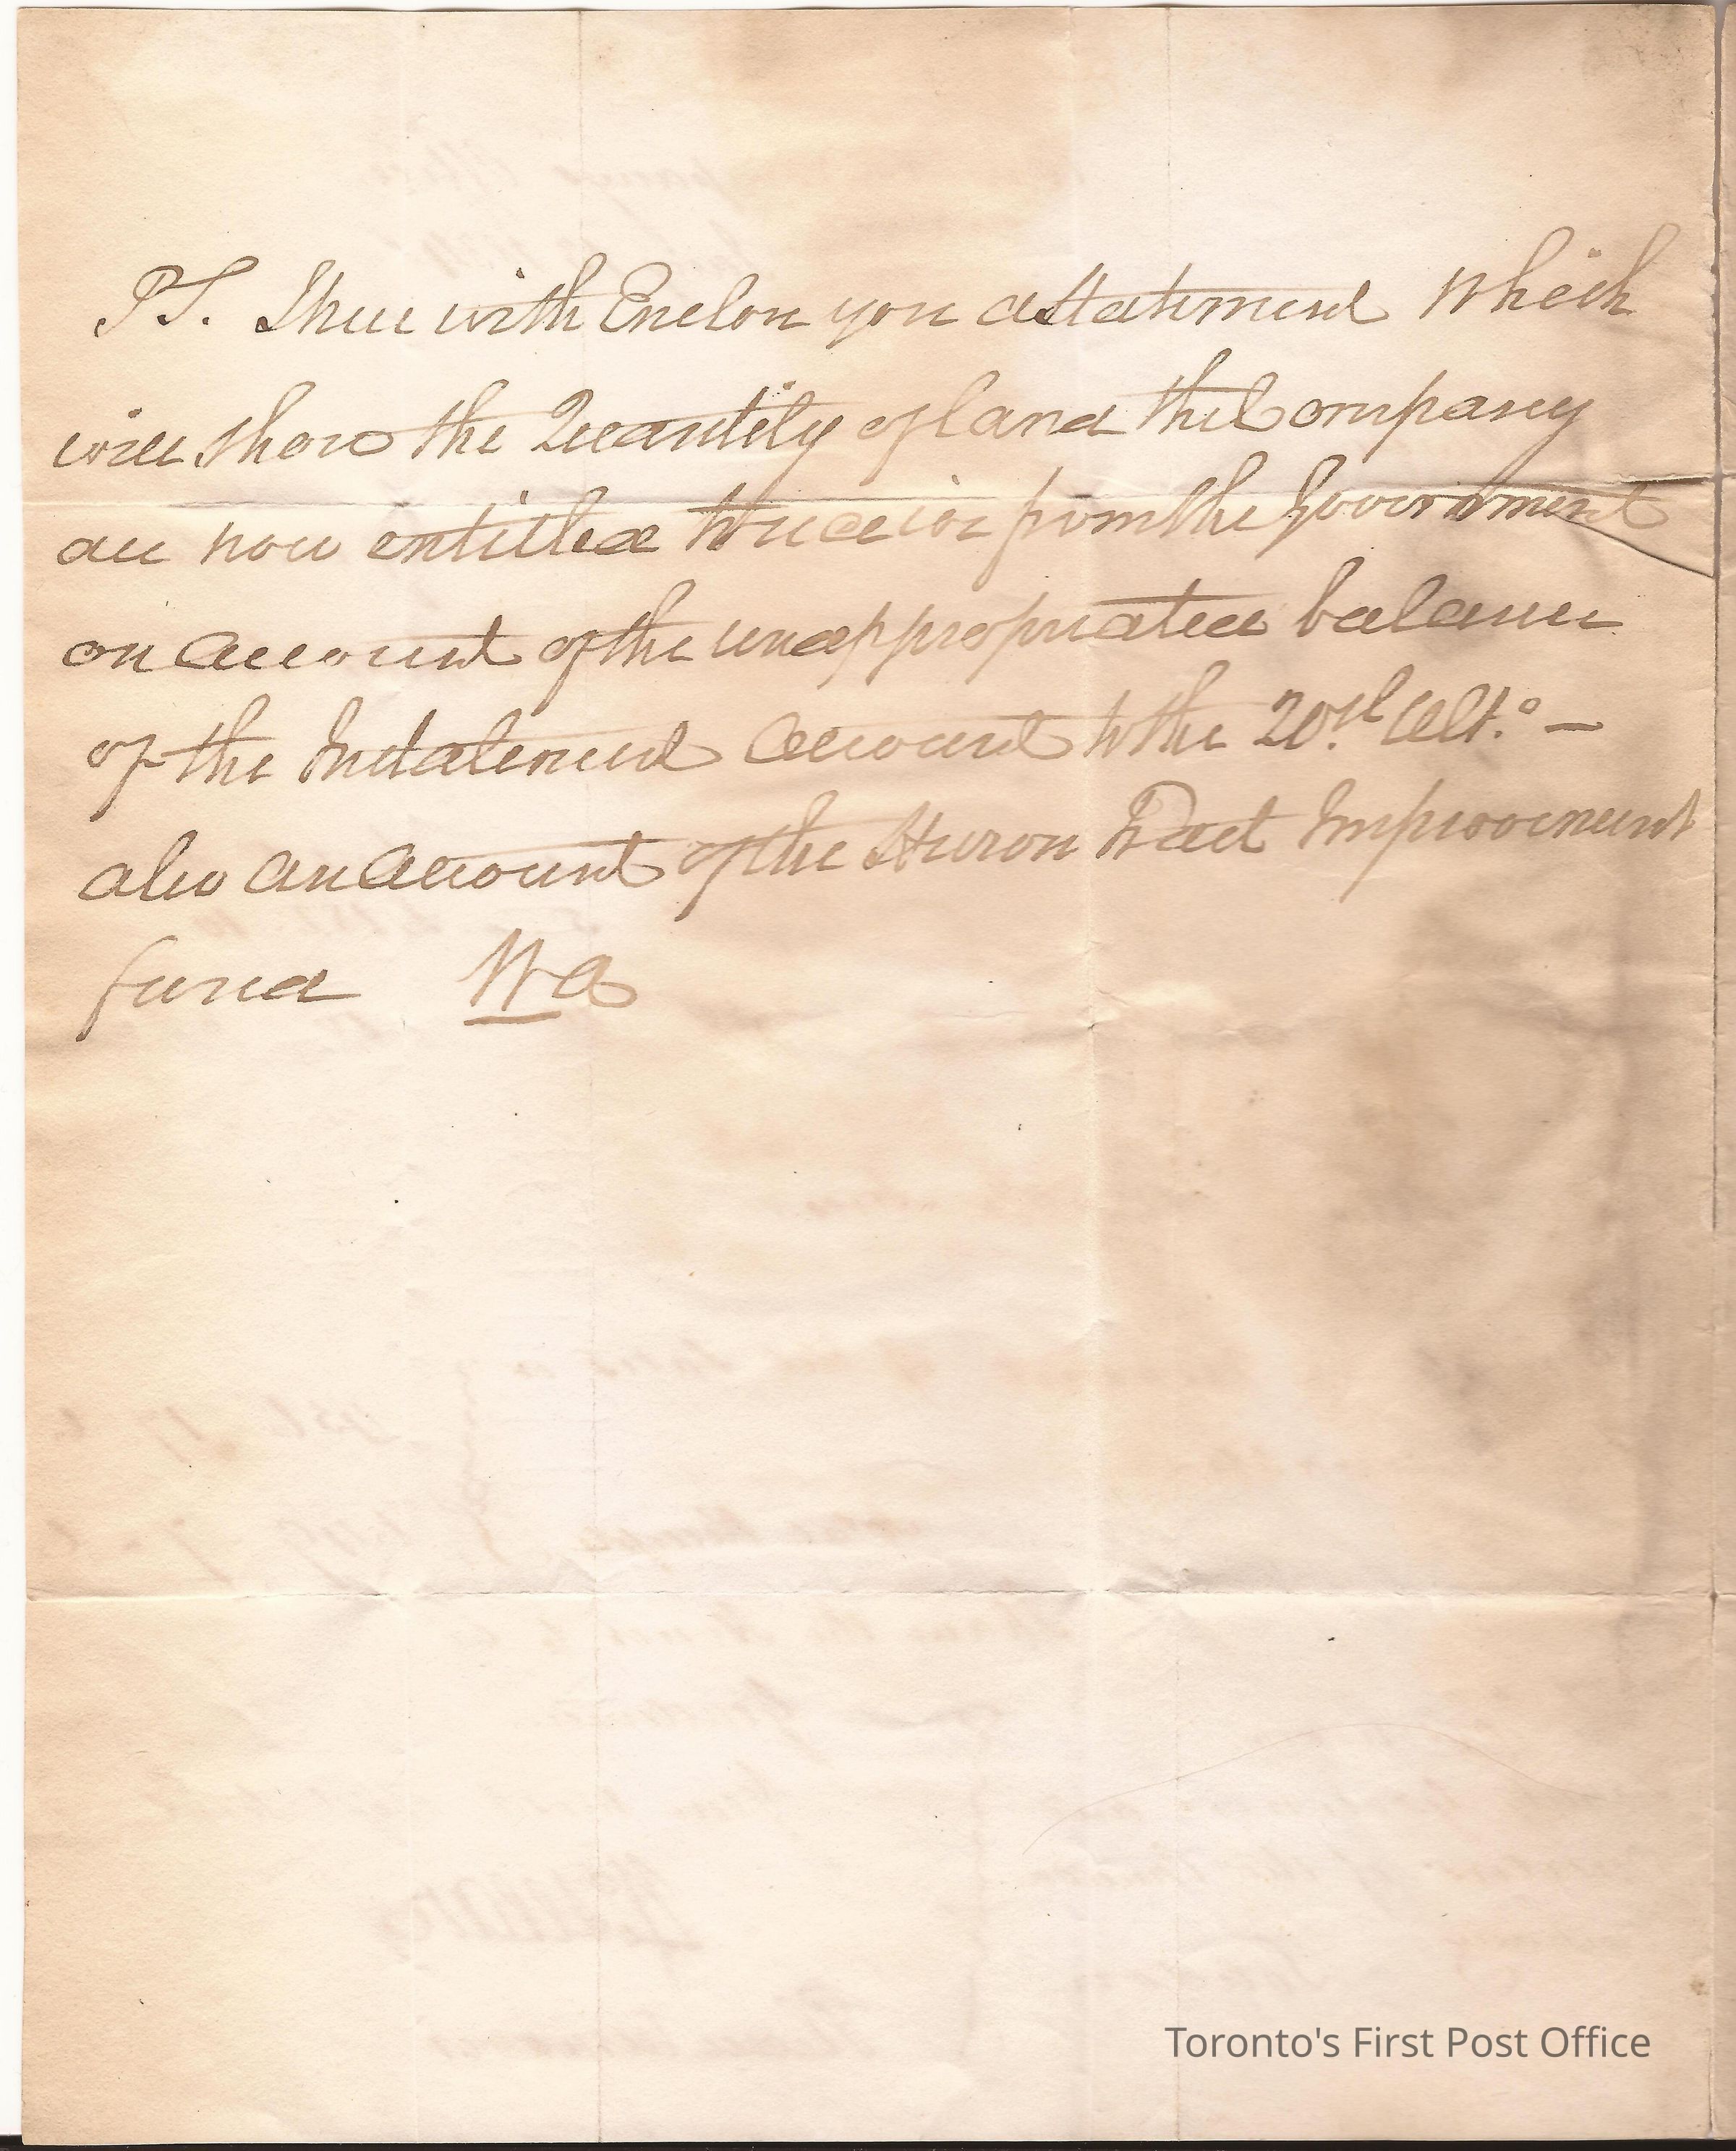 PS. I here with Enclose you a Statement which
will show the Quantity of land the Company
are now entitled to receive from the Government
on account of the unappropriated balance
of the Instalment Account to the 20th Ulto. —
also an Account of the Huron Tract Improvement
fund Wa
Toronto's First Post Office